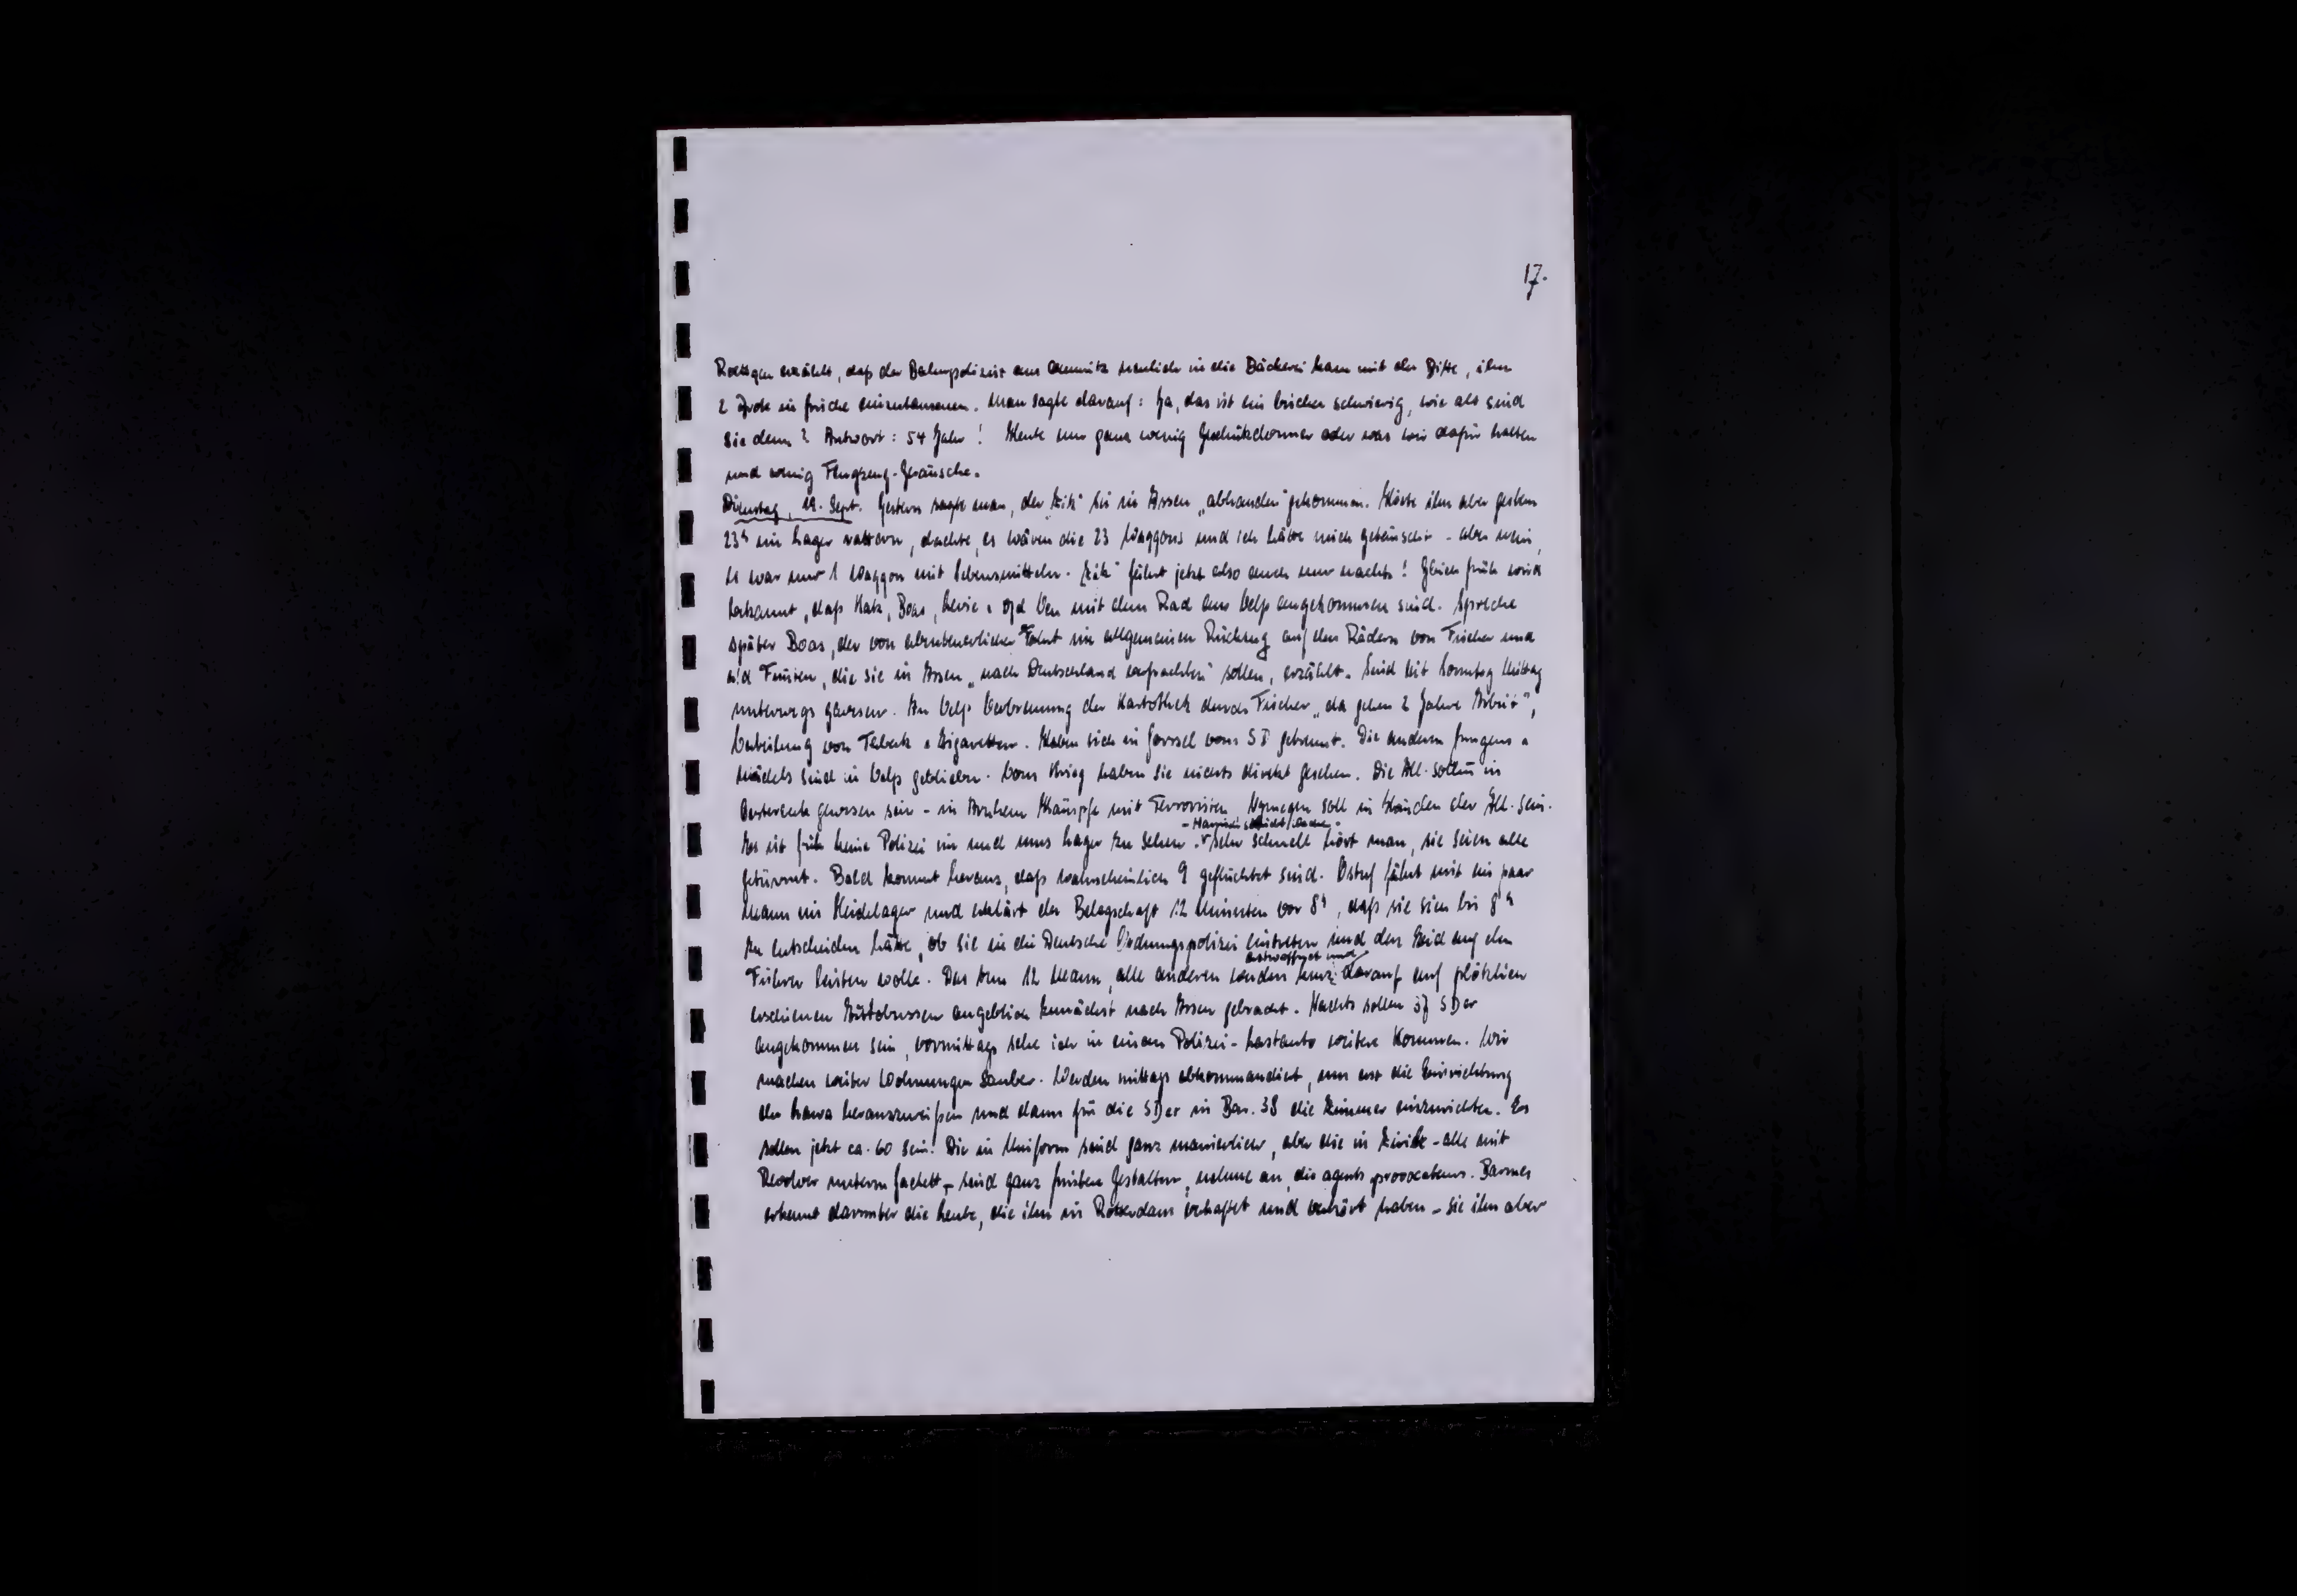 17.
Roettgen erzählt, daß der Bahnpolizist aus Chemnitz neulich in die Bäckerei kam mit der Bitte, ihm
2 Brote in frische umzutauschen. Man sagte darauf: Ja, das ist ein bischen schwierig, wie alt sind
sie denn? Antwort: 54 Jahr! Heute nur ganz wenig Geschützdonner oder was wir dafür halten
und wenig Flugzeug-Geräusche.
Dienstag, 19. Sept. Gestern sagte man, der "Zik" sei in Assen "abhanden" gekommen. Hörte ihn aber gestern
23h ins Lager rattern, dachte, es wären die 23 Waggons und ich hätte mich getäuscht - aber nein,
es war nur 1 Waggon mit Lebensmitteln. "Zik" fährt jetzt also auch nur nachts! Gleich früh wird
bekannt, daß Katz, Boas, Levie & v/d Veen mit dem Rad aus Velp angekommen sind. Spreche
später Boas, der von abenteuerlicher Fahrt im allgemeinen Rückzug auf den Rädern von Fischer und
a/d Fünten, die sie in Assen "nach Deutschland verfrachten" sollen, erzählt. Sind seit Sonntag Mittag
unterwegs gewesen. In Velp Verbrennung der Kartothek durch Fischer "da gehen 2 Jahre Arbeit",
Verteilung von Tabak & Zigaretten. Haben sich in Gorssel vom SD getrennt. Die andern Jungens &
Mädels sind in Velp geblieben. Vom Krieg haben sie nichts direkt gesehen. Die All. sollen in
Oosterbeek gewesen sein - in Arnhem Kämpfe mit Terroristen. Nymegen soll in Händen der All. sein.
Es ist früh keine Polizei im und ums Lager zu sehen. Sehr schnell hört man, sie seien alle
getürmt. Bald kommt heraus, daß wahrscheinlich 9 geflüchtet sind. Ostuf fährt mit ein paar
Mann ins Heidelager und erklärt der Belegschaft 12 Minuten vor 8h, daß sie sich bis 8h
zu entscheiden hätte, ob sie in die Deutsche Ordnungspolizei eintreten und den Eid auf den
entwaffnet und
Führer leisten wolle. Das tun 12 Mann, alle anderen werden kurz darauf auf plötzlich
erschienen Autobussen angeblich zunächst nach Assen gebracht. Nachts sollen 37 SDer
angekommen sein, vormittags sehe ich in einem Polizei-Lastauto weitere kommen. Wir
machen weiter Wohnungen sauber. Werden mittags abkommandiert, um erst die Einrichtung
der Lawa herauszureißen und dann für die SDer in Bar. 38 die Zimmer einzurichten. Es
sollen jetzt ca. 60 sein. Die in Uniform sind ganz manierlich, aber die in Zivil - alle mit
Revolver unterm Jackett - sind ganz finstere Gestalten, nehme an, die agents provocateurs. Barmes
erkennt darunter die Leute, die ihn in Rotterdam verhaftet und verhört haben - sie ihn aber